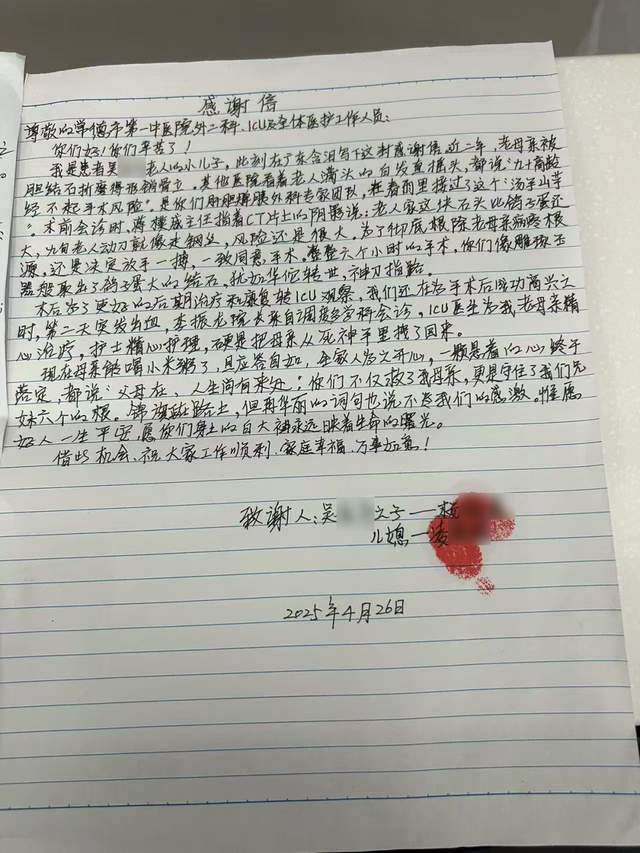 感谢信
尊敬的学僧市第一中医院外二科、ICU及全体医护工作人员:
你们好!你们辛苦了!
我是患者吴 老人的小儿子,此刻在广东含泪写下这封感谢信。近二年,老母亲被
胆结石折磨得形销骨立。其他医院看着老人满头的白发直摇头,都说"九十高龄
经不起手术风险"。是你们肝胆胰腺外科专家团队,在看雨里接过了这个"汤手山芋
"。术前会诊时,蒋权盛主任指着CT片上的阴影说:老人家这块石头比鸽子蛋还
大,九旬老人动刀就像走钢丝,风险还是很大。为了彻底根除老母亲病疼根
源,还是决定放手一搏,一致同意手术。整整六个小时的手术,你们像雕琢玉
器般取出了鸽子蛋大的结石,犹如华佗转世,神刀指路。
术后为了更好的后期治疗和康复转ICU观察,我们还在为手术后成功高兴之
时,第二天突发出血,李振龙院长亲自调度多学科会诊。ICU医生为我老母亲精
心治疗,护士精心护理,硬是把母亲从死神手里拽了回来。
现在母亲能喝小米粥了,且应答自如,全家人为之开心,一颗悬着的心终于
落定,都说"父母在,人生尚有来处;你们不仅救了我母亲,更是守住了我们兄
妹六个的根。锦旗在路上,但再华丽的词句也说不尽我们的感激。惟愿
好人一生平安,愿你们身上的白大褂永远映着生命的曙光。
借此机会,祝大家工作顺利、家庭幸福、万事如意!
致谢人:吴 之子—
儿媳—凌
2025年4月26日